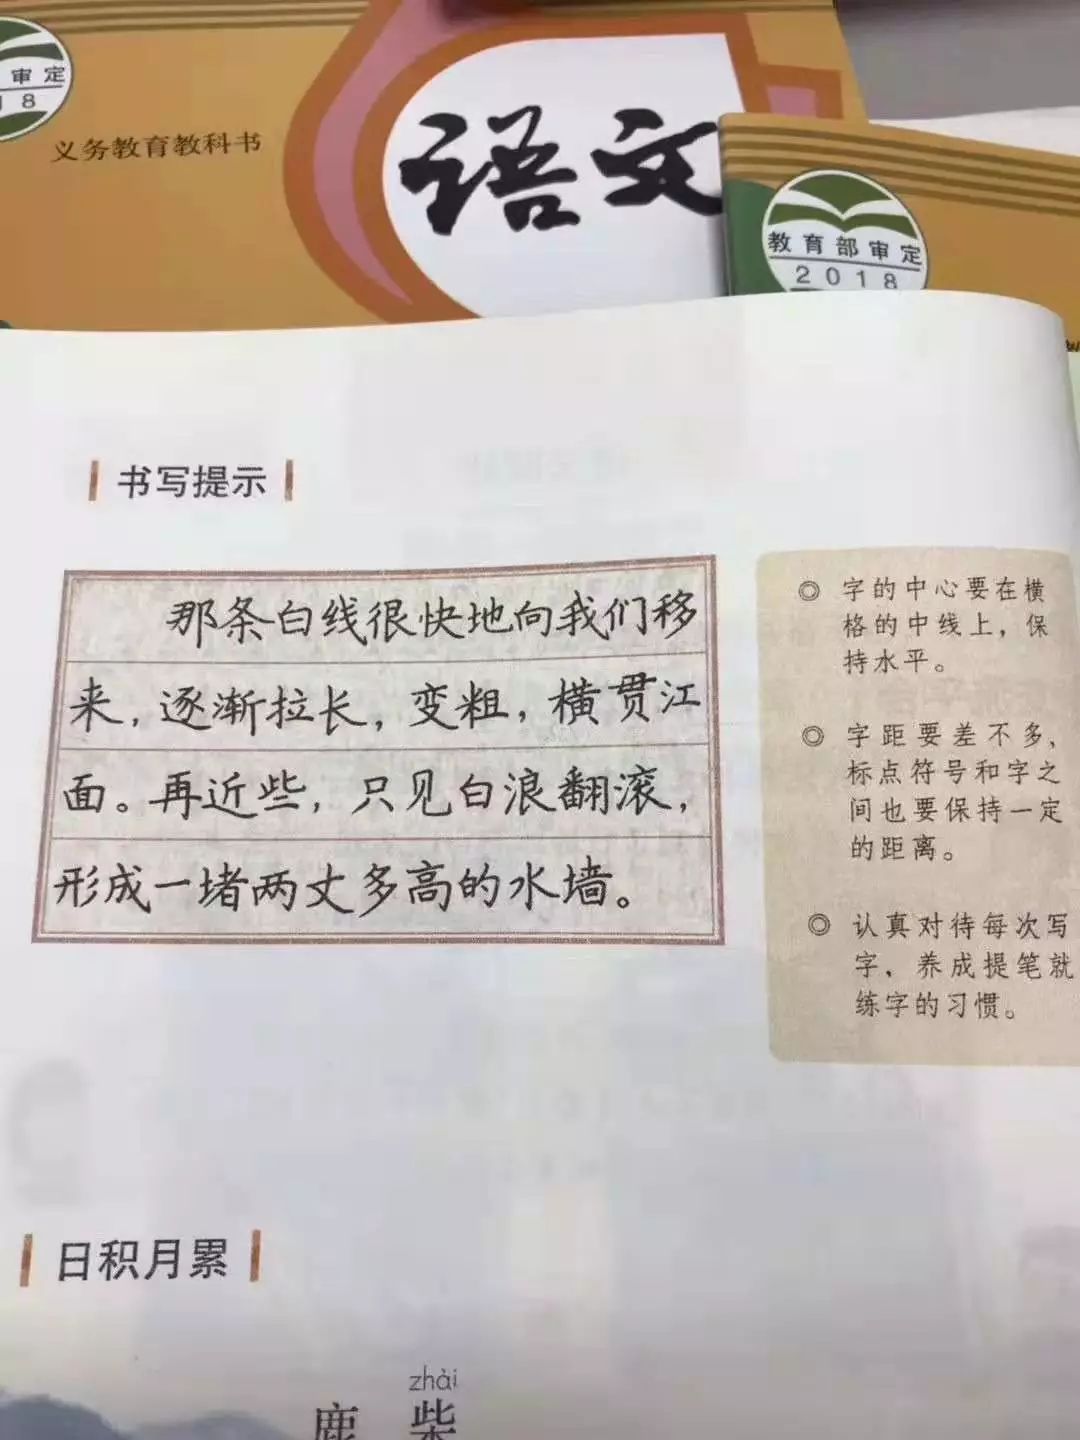 审定
18
义务教育教科书
语文
教育部审定
2018
书写提示
那条白线很快地向我们移
来，逐渐拉长，变粗，横贯江
面。再近些，只见白浪翻滚，
形成一堵两丈多高的水墙。
◎ 字的中心要在横
格的中线上，保
持水平。
◎ 字距要差不多，
标点符号和字之
间也要保持一定
的距离。
◎ 认真对待每次写
字，养成提笔就
练字的习惯。
日积月累
zhài
鹿 柴